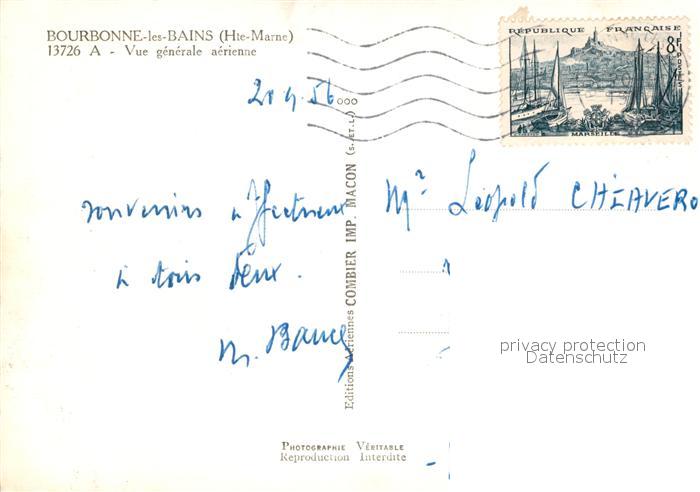 BOURBONNE-les-BAINS (Hte-Marne)
13726 A - Vue générale aérienne
RÉPUBLIQUE FRANÇAISE
8F
POSTES
MARSEILLE
souvenirs affectueux
à tous deux.
M. Léopold CHIAVERO
Editions Aériennes COMBIER IMP. MACON (S.-ET-L.)
privacy protection
Datenschutz
PHOTOGRAPHIE VÉRITABLE
Reproduction Interdite